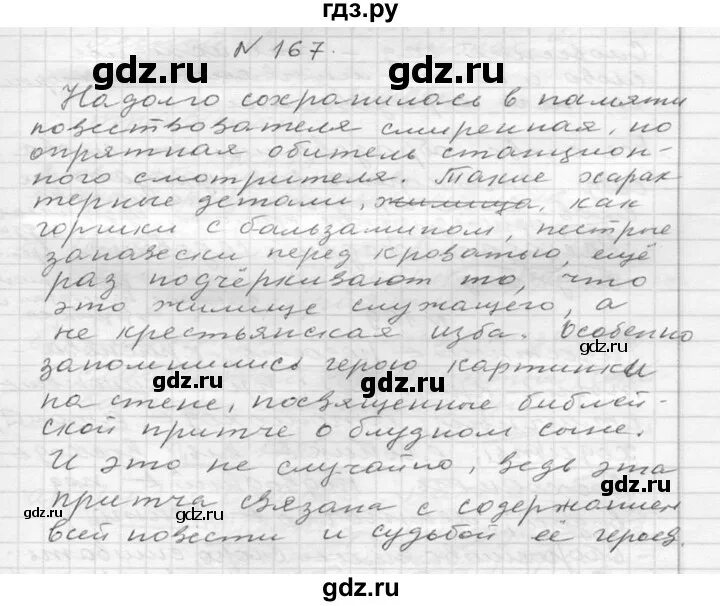 гдз.ру
N 167.
Надолго сохранилась в памяти
повествователя смиренная, но
опрятная обитель станцион-
ного смотрителя. Такие харак-
терные детали, жилища, как
горшки с бальзамином, пестрые
занавески перед кроватью, ещё
раз подчёркивают то, что
это жилище служащего, а
не крестьянская изба. Особенно
запомнились герою картинки
на стене, посвященные библей-
ской притче о блудном сыне.
И это не случайно, ведь эта
притча связана с содержанием
всей повести и судьбой её героев.
gdz.ru
gdz.ru
gdz.ru
gdz.ru
gdz.ru
gdz.ru
gdz.ru
gdz.ru
gdz.ru
gdz.ru
gdz.ru
gdz.ru
гдз.ру